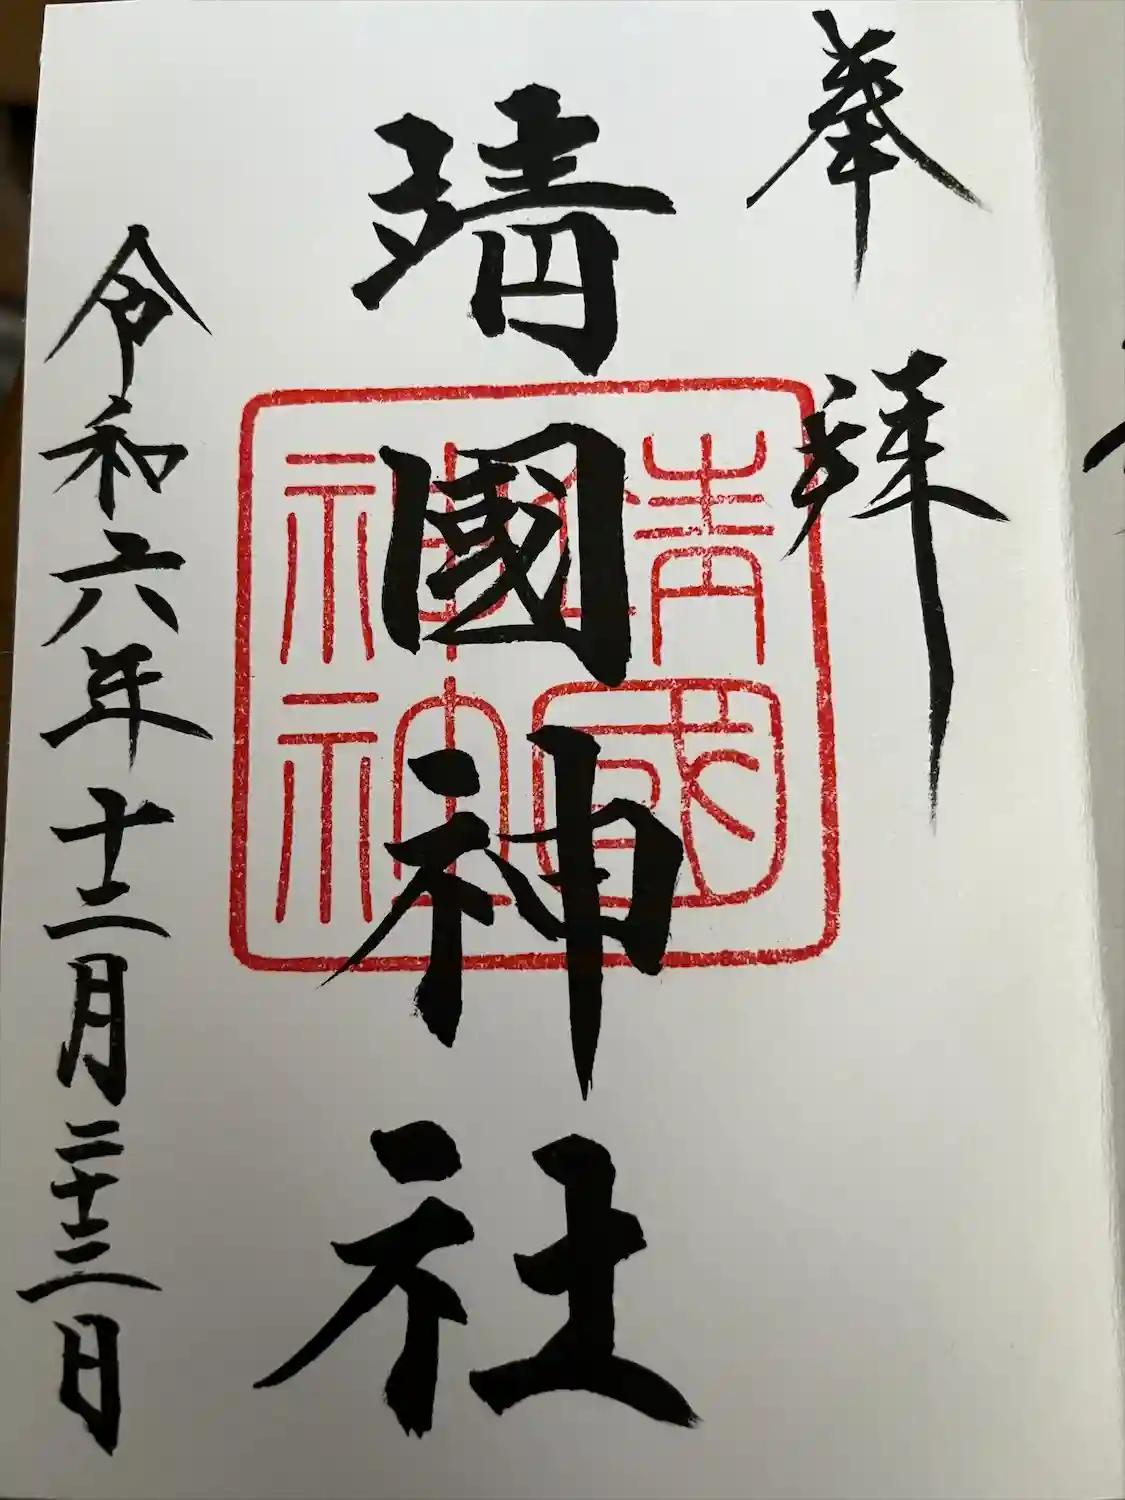 奉拝
靖國神社
靖國神社
令和六年十二月二十三日